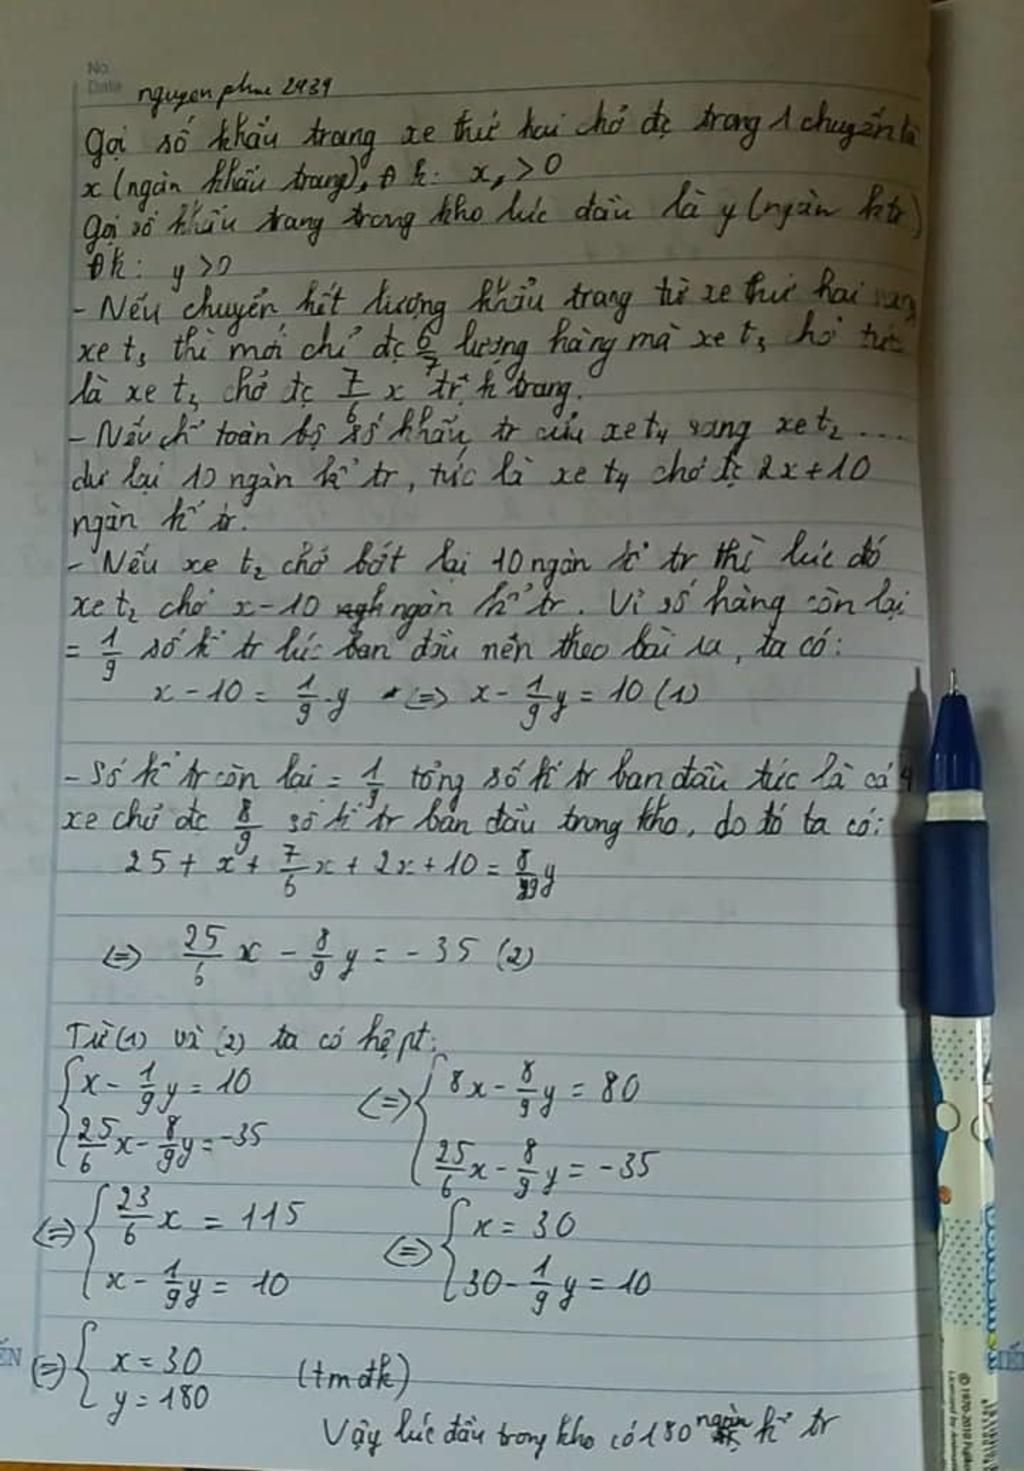 No.
Date
nguyen phuc 2434
Gọi số khẩu trang xe thứ hai chở đc trong 1 chuyến là
x (ngàn khẩu trang), Đk: x > 0
Gọi số khẩu trang trong kho lúc đầu là y (ngàn ktr)
Đk: y >0
- Nếu chuyển hết lượng khẩu trang từ xe thứ hai sang
xe t3 thì mới chỉ đc 6/7 lượng hàng mà xe t3 chở tức
là xe t3 chở đc 7/6 x tr k trang.
- Nếu toàn bộ số khẩu tr của xe t4 sang xe t2 ...
dư lại 10 ngàn k tr, tức là xe t4 chở đc 2x+10
ngàn k tr.
- Nếu xe t2 chở bớt lại 10 ngàn k tr thì lúc đó
xe t2 chở x-10 ngàn k tr. Vì số hàng còn lại
= 1/9 số k tr lúc ban đầu nên theo bài ra, ta có:
x - 10 = 1/9 y <=> x - 1/9 y = 10 (1)
- Số k tr còn lại = 1/9 tổng số k tr ban đầu tức là cả 4
xe chở đc 8/9 số k tr ban đầu trong kho, do đó ta có:
25 + x + 7/6 x + 2x + 10 = 8/9 y
<=> 25/6 x - 8/9 y = - 35 (2)
Từ (1) và (2) ta có hệ pt:
{ x - 1/9 y = 10 <=> { 8x - 8/9 y = 80
25/6 x - 8/9 y = -35 25/6 x - 8/9 y = -35
<=> { 23/6 x = 115 <=> { x = 30
x - 1/9 y = 10 30 - 1/9 y = 10
<=> { x = 30 (tmđk)
y = 180
Vậy lúc đầu trong kho có 180 ngàn k tr